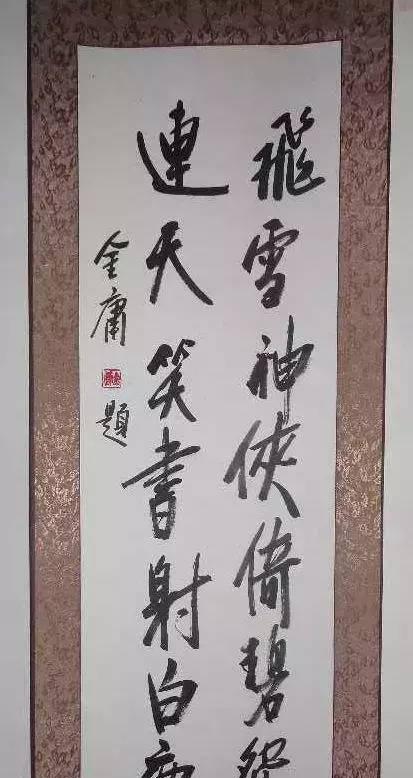 飛雪神俠倚碧
連天笑書射白
金庸題